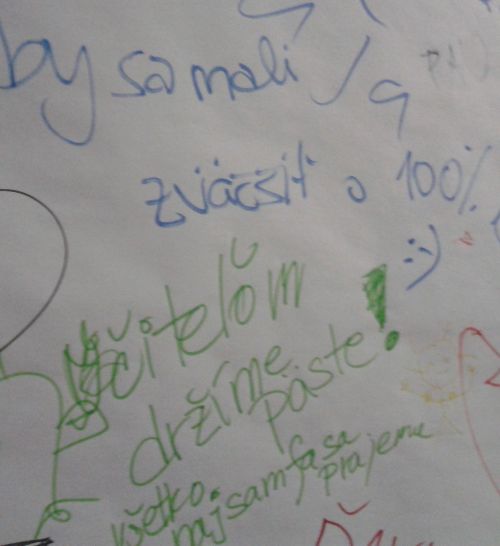 by sa mali
zväčšiť o 100%
:-)
Učiteľom
držíme
päste!
všetko
naj samfasa
prajeme